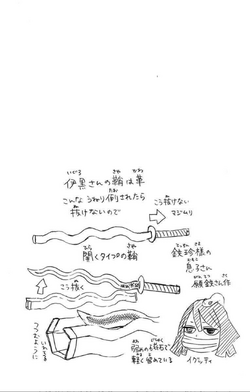 伊黒さんの鞘は革
こんなうねり倒されたら
抜けないので
こう抜けない
マジムリ
開くタイプの鞘
こう抜く
鉄珍様の
息子さん
鉄さん作
つつむように
いれる
弱めの磁石で
軽く留めている
イグッティ